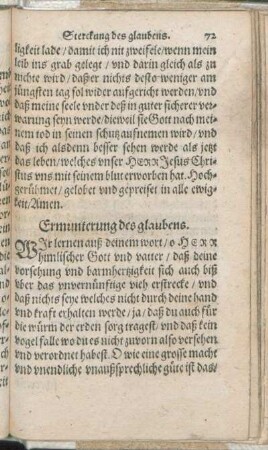 Sterckung des glaubens. 72
ligkeit lade / damit ich nit zweifele / wenn mein
leib ins grab gelegt / vnd darin gleich als zu
nichte wird / daßer nichts desto weniger am
jüngsten tag sol wider aufgericht werden / vnd
daß meine seele vnder deß in guter sicherer ver⸗
warung seyn werde / dieweil sie Gott nach mei⸗
nem tod in seinen schutz aufnemen wird / vnd
daß ich alsdenn besser sehen werde als jetzt
das leben / welches vnser HERR Jesus Chri⸗
stus vns mit seinem blut erworben hat. Hoch⸗
gerühmet / gelobet vnd gepreiset in alle ewig⸗
keit / Amen.
Ermunterung des glaubens.
WJr lernen auß deinem wort / o HERR
himlischer Gott vnd vatter / daß deine
vorsehung vnd barmhertzigkeit sich auch biß
vber das vnvernünftige vieh erstrecke / vnd
daß nichts seye welches nicht durch deine hand
vnd kraft erhalten werde / ja / daß du auch für
die würm der erden sorg tragest / vnd daß kein
vogel falle wo du es nicht zuvorn also versehen
vnd verordnet habest. O wie eine grosse macht
vnd vnendliche vnaußsprechliche güte ist das⸗